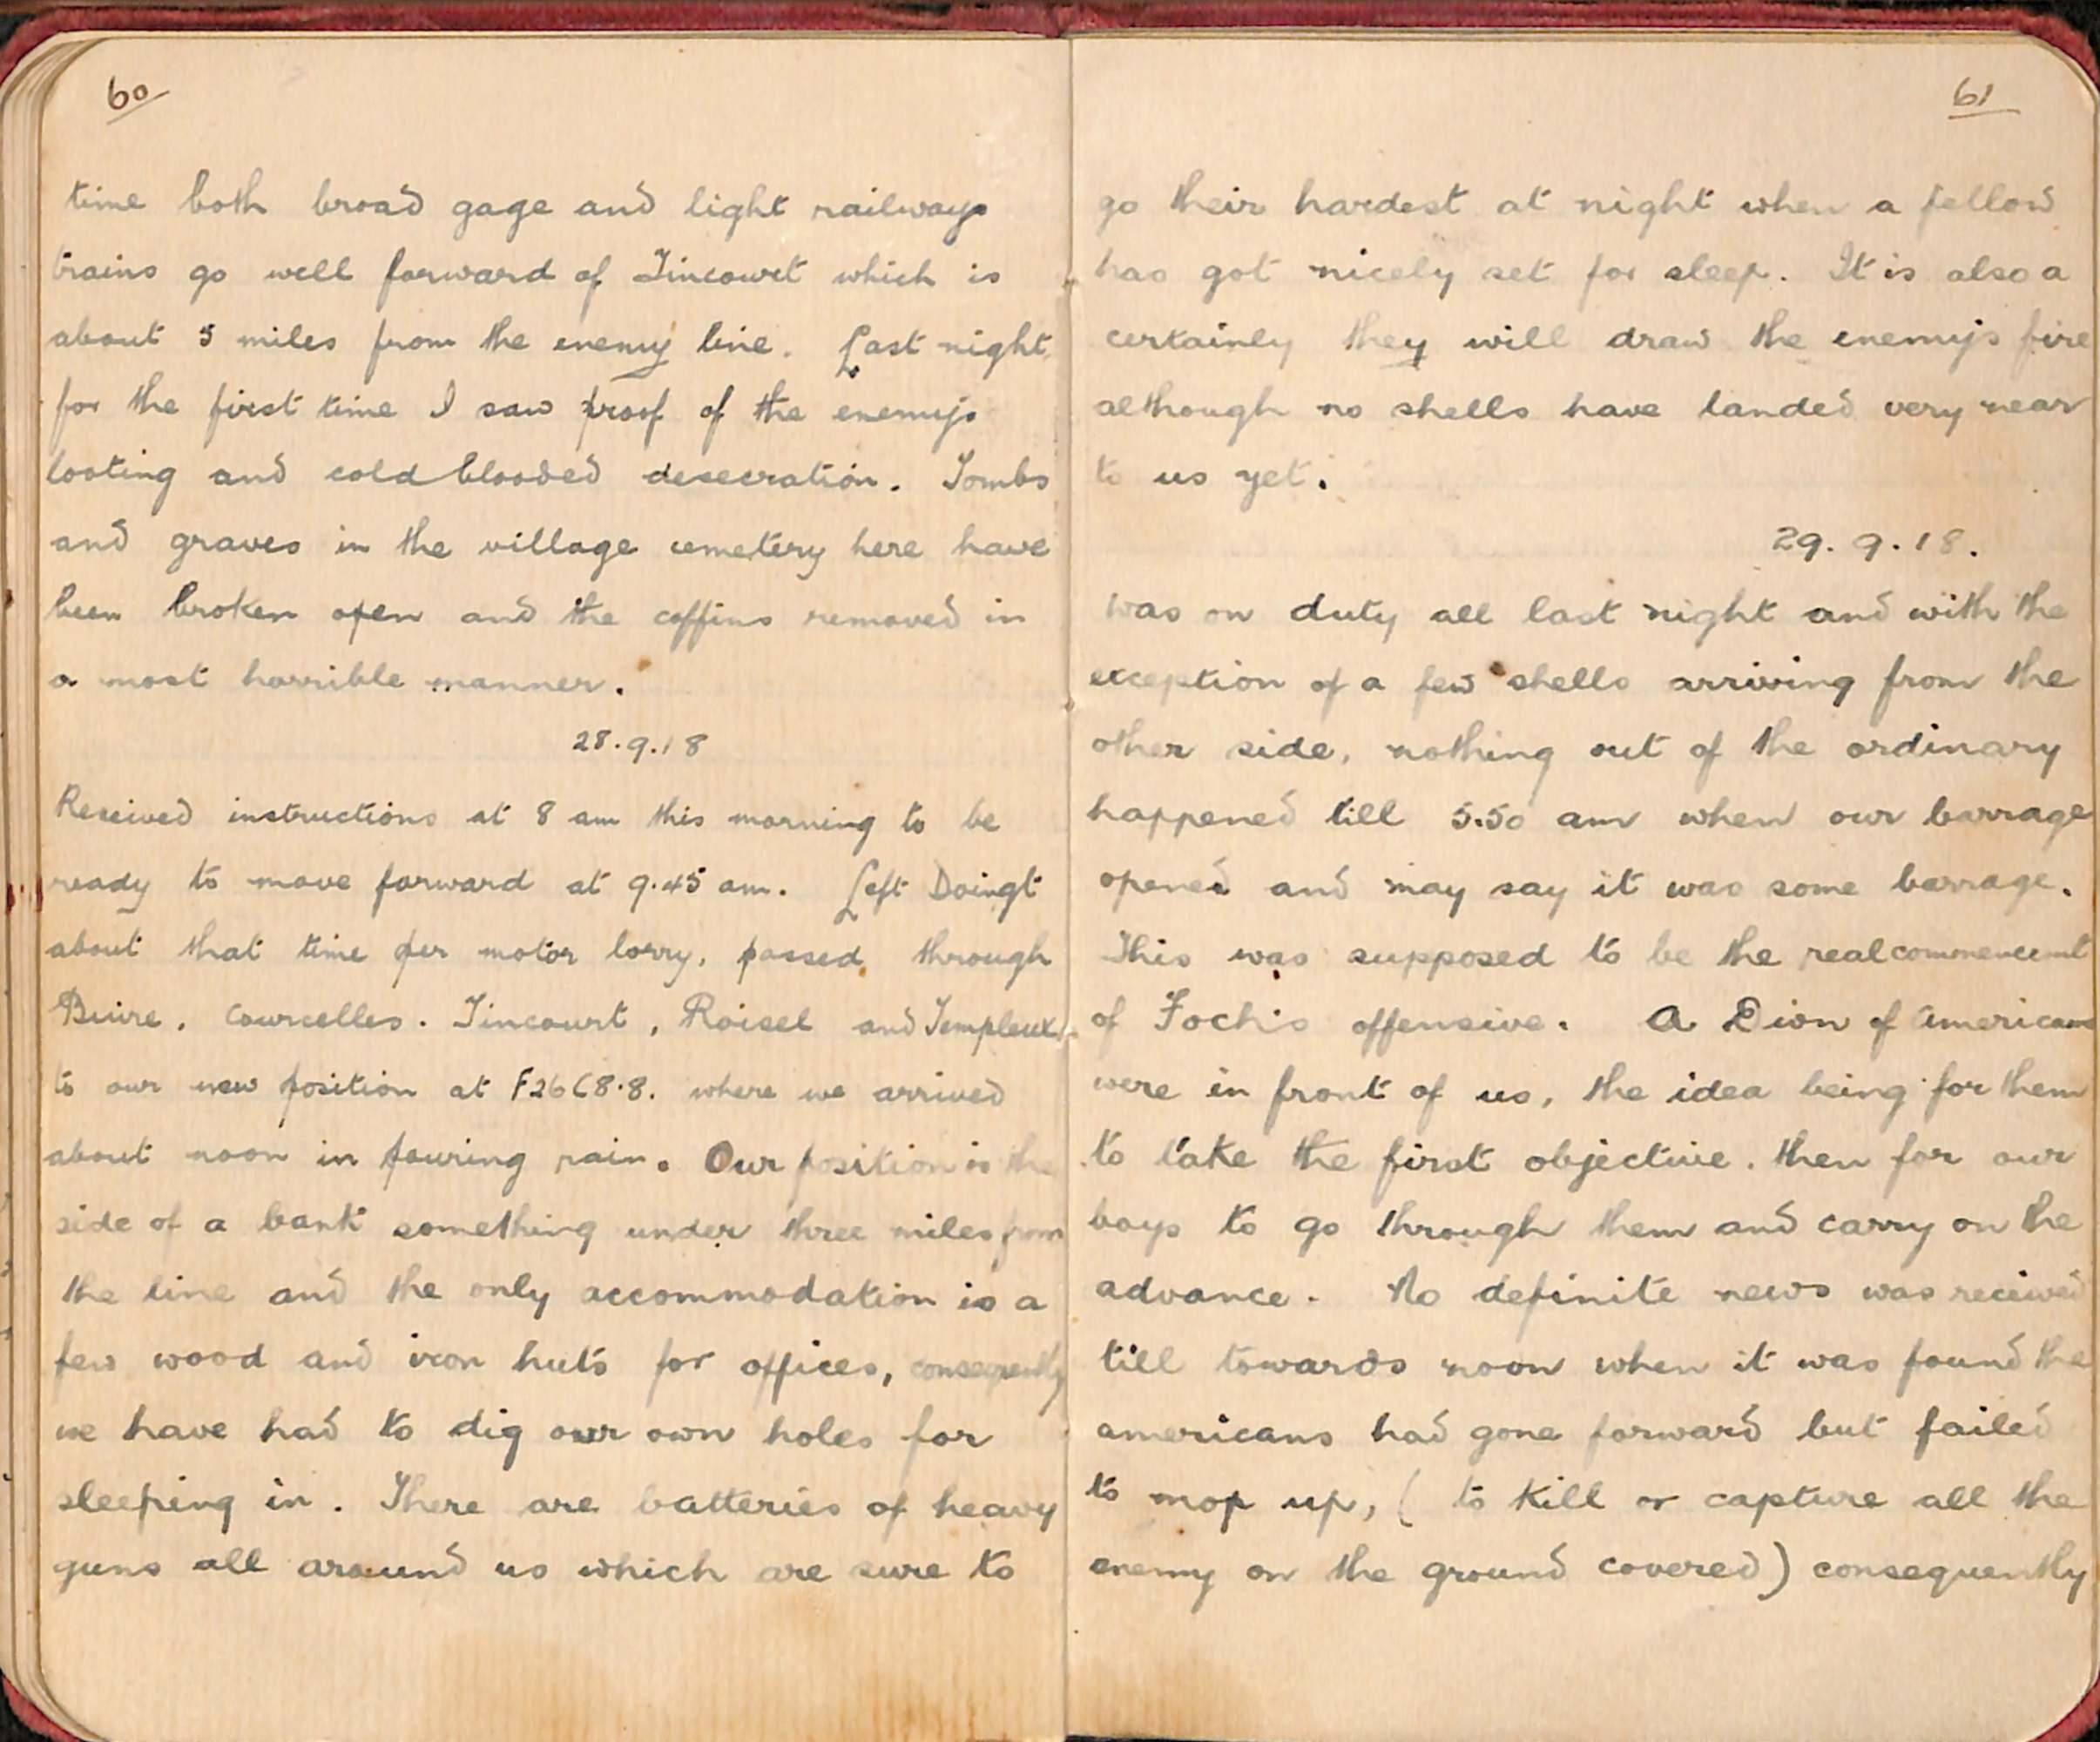 60
time both broad gage and light railways
trains go well forward of Tincourt which is
about 5 miles from the enemy line. Last night
for the first time I saw proof of the enemys
looting and cold blooded desecration. Tombs
and graves in the village cemetery here have
been broken open and the coffins removed in
a most horrible manner.
28.9.18
Received instructions at 8 am this morning to be
ready to move forward at 9.45 am. Left Doingt
about that time per motor lorry, passed through
Buire, Courcelles. Tincourt, Roisel and Templeux
to our new position at F26C8.8. where we arrived
about noon in pouring rain. Our position is the
side of a bank something under three miles from
the line and the only accommodation is a
few wood and iron huts for offices, consequently
we have had to dig our own holes for
sleeping in. There are batteries of heavy
guns all around us which are sure to
61
go their hardest at night when a fellow
has got nicely set for sleep. It is also a
certainly they will draw the enemys fire
although no shells have landed very near
to us yet.
29.9.18.
was on duty all last night and with the
exception of a few shells arriving from the
other side, nothing out of the ordinary
happened till 5.50 am when our barrage
opened and may say it was some barrage.
This was supposed to be the real commencement
of Foch's offensive. A Dion of Americans
were in front of us, the idea being for them
to take the first objective. then for our
boys to go through them and carry on the
advance. No definite news was received
till towards noon when it was found the
americans had gone forward but failed
to mop up, ( to kill or capture all the
enemy on the ground covered) consequently